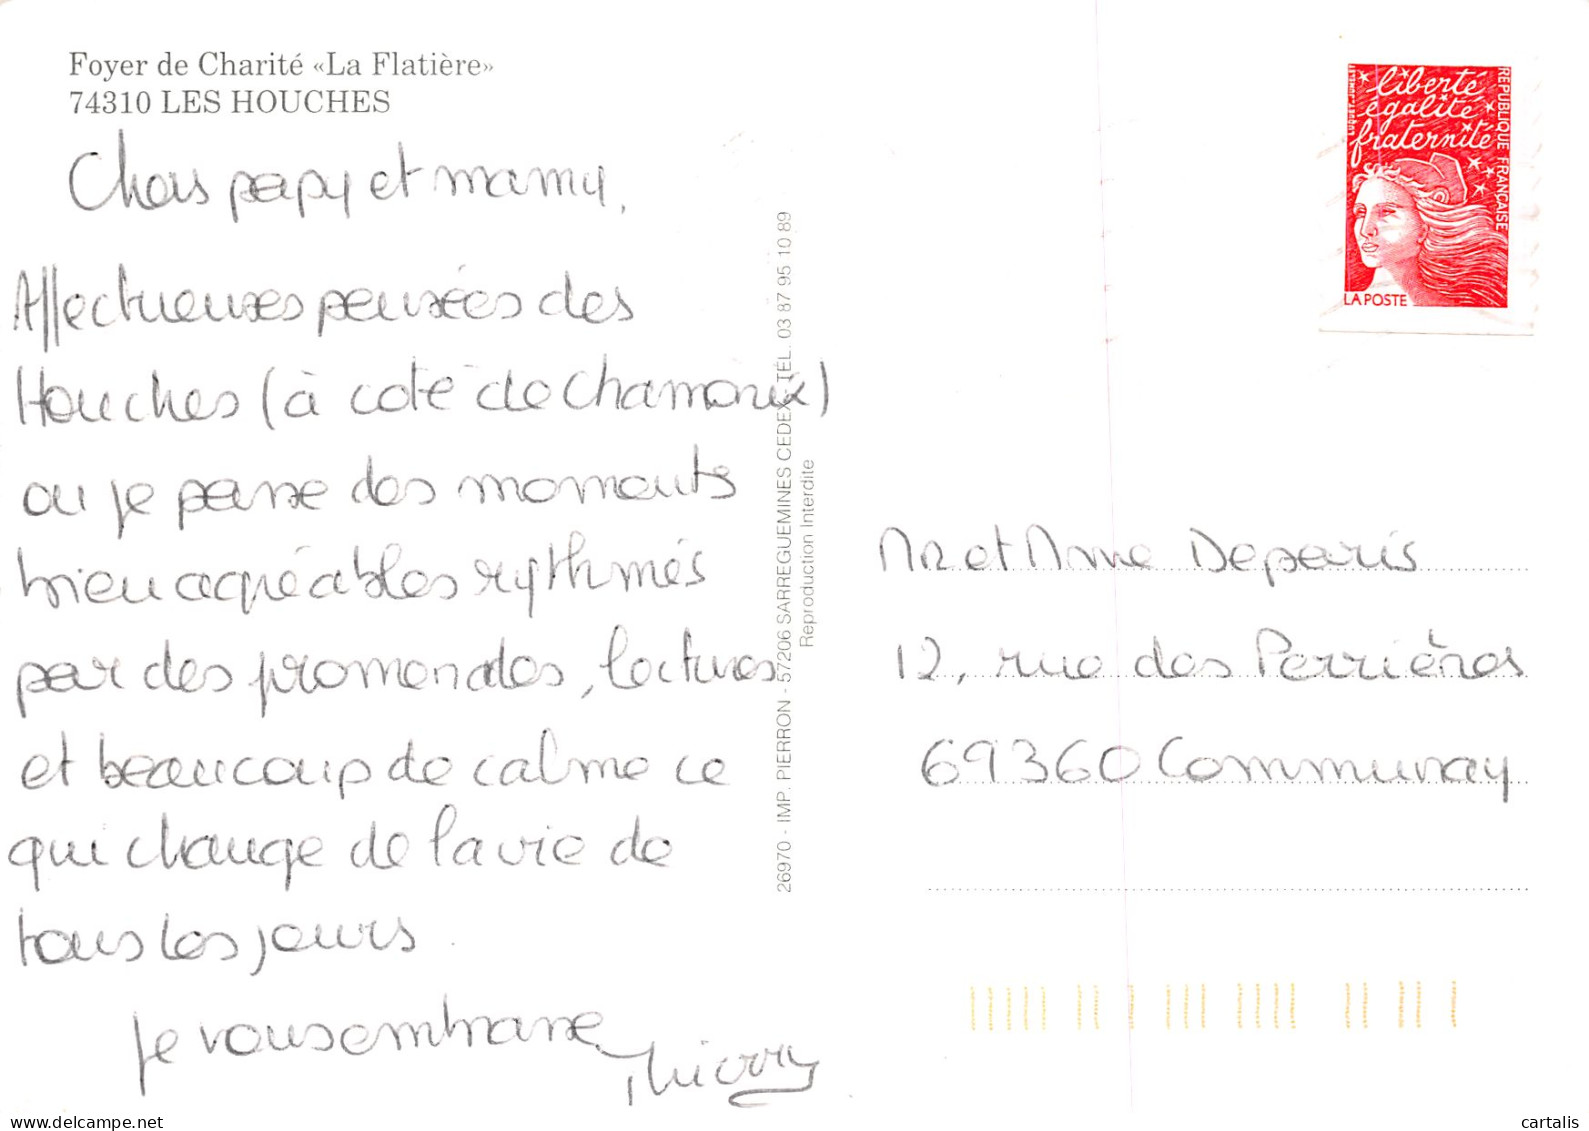 Foyer de Charité «La Flatière»
74310 LES HOUCHES
Chers papy et mamy,
Affectueuses pensées des
Houches (à coté de Chamonix)
ou je passe des moments
bien agréables rythmés
par des promenades, lectures
et beaucoup de calme ce
qui change de la vie de
tous les jours.
Je vous embrasse
Thierry
26970 - IMP. PIERRON - 57206 SARREGUEMINES CEDEX - TÉL. 03 87 95 10 89
Reproduction Interdite
liberté
égalité
fraternité
RÉPUBLIQUE FRANÇAISE
LA POSTE
Mr et Mme Deparis
12, rue des Perrières
69360 Communay
delcampe.net
cartalis